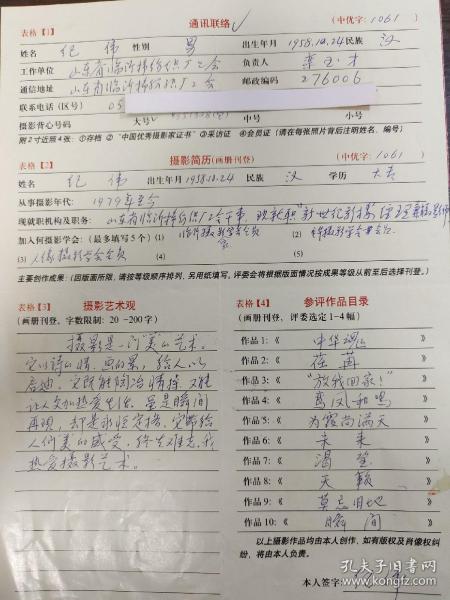 表格【1】 通讯联络 (中优字:1061)
姓名 纪伟 性别 男 出生年月 1958.10.24 民族 汉
工作单位 山东省临沂棉纺织厂工会 负责人
通信地址 山东省临沂棉纺织厂工会 邮政编码 276006
联系电话(区号) 05
摄影背心号码 大号 中号 小
附2寸近照4张: ①存档 ②"中国优秀摄影家证书" ③采访证 ④会员证 (请在每张照片背后注明姓名、编号)
表格【2】 摄影简历(画册刊登) (中优字:1061)
姓名 纪伟 出生年月 1958.10.24 民族 汉 学历 大专
从事摄影年代: 1979年至今
现就职机构及职务: 山东省临沂棉纺织厂工会干事
加入何摄影学会: (最多填写5个) (1) (2)
(3) 人像摄影学会会员 (4) (5)
主要创作成果: (因版面所限,请按等级顺序排列,另用纸填写。评委会将根据版面情况按成果等级从前至后选择刊登。)
表格【3】 摄影艺术观
(画册刊登,字数限制: 20-200字)
摄影是一门美的艺术。
它以诗的情、画的景,给人以
启迪。它既能陶冶情操,又能
让人更加热爱生活。虽是瞬间
再现,却是永恒定格。它带给
人们美的感受,终生难忘。我
热爱摄影艺术。
表格【4】 参评作品目录
(画册刊登,评委选定1-4幅)
作品1:《 中华魂 》
作品2:《 》
作品3:《 "放我回家!" 》
作品4:《 鸾凤和鸣 》
作品5:《 为霞尚满天 》
作品6:《 未来 》
作品7:《 渴望 》
作品8:《 天籁 》
作品9:《 莫忘旧地 》
作品10:《 瞬间 》
以上摄影作品均由本人创作,如有版权及肖像权纠
纷,将由本人负责。
本人签字: 纪伟
孔夫子旧书网